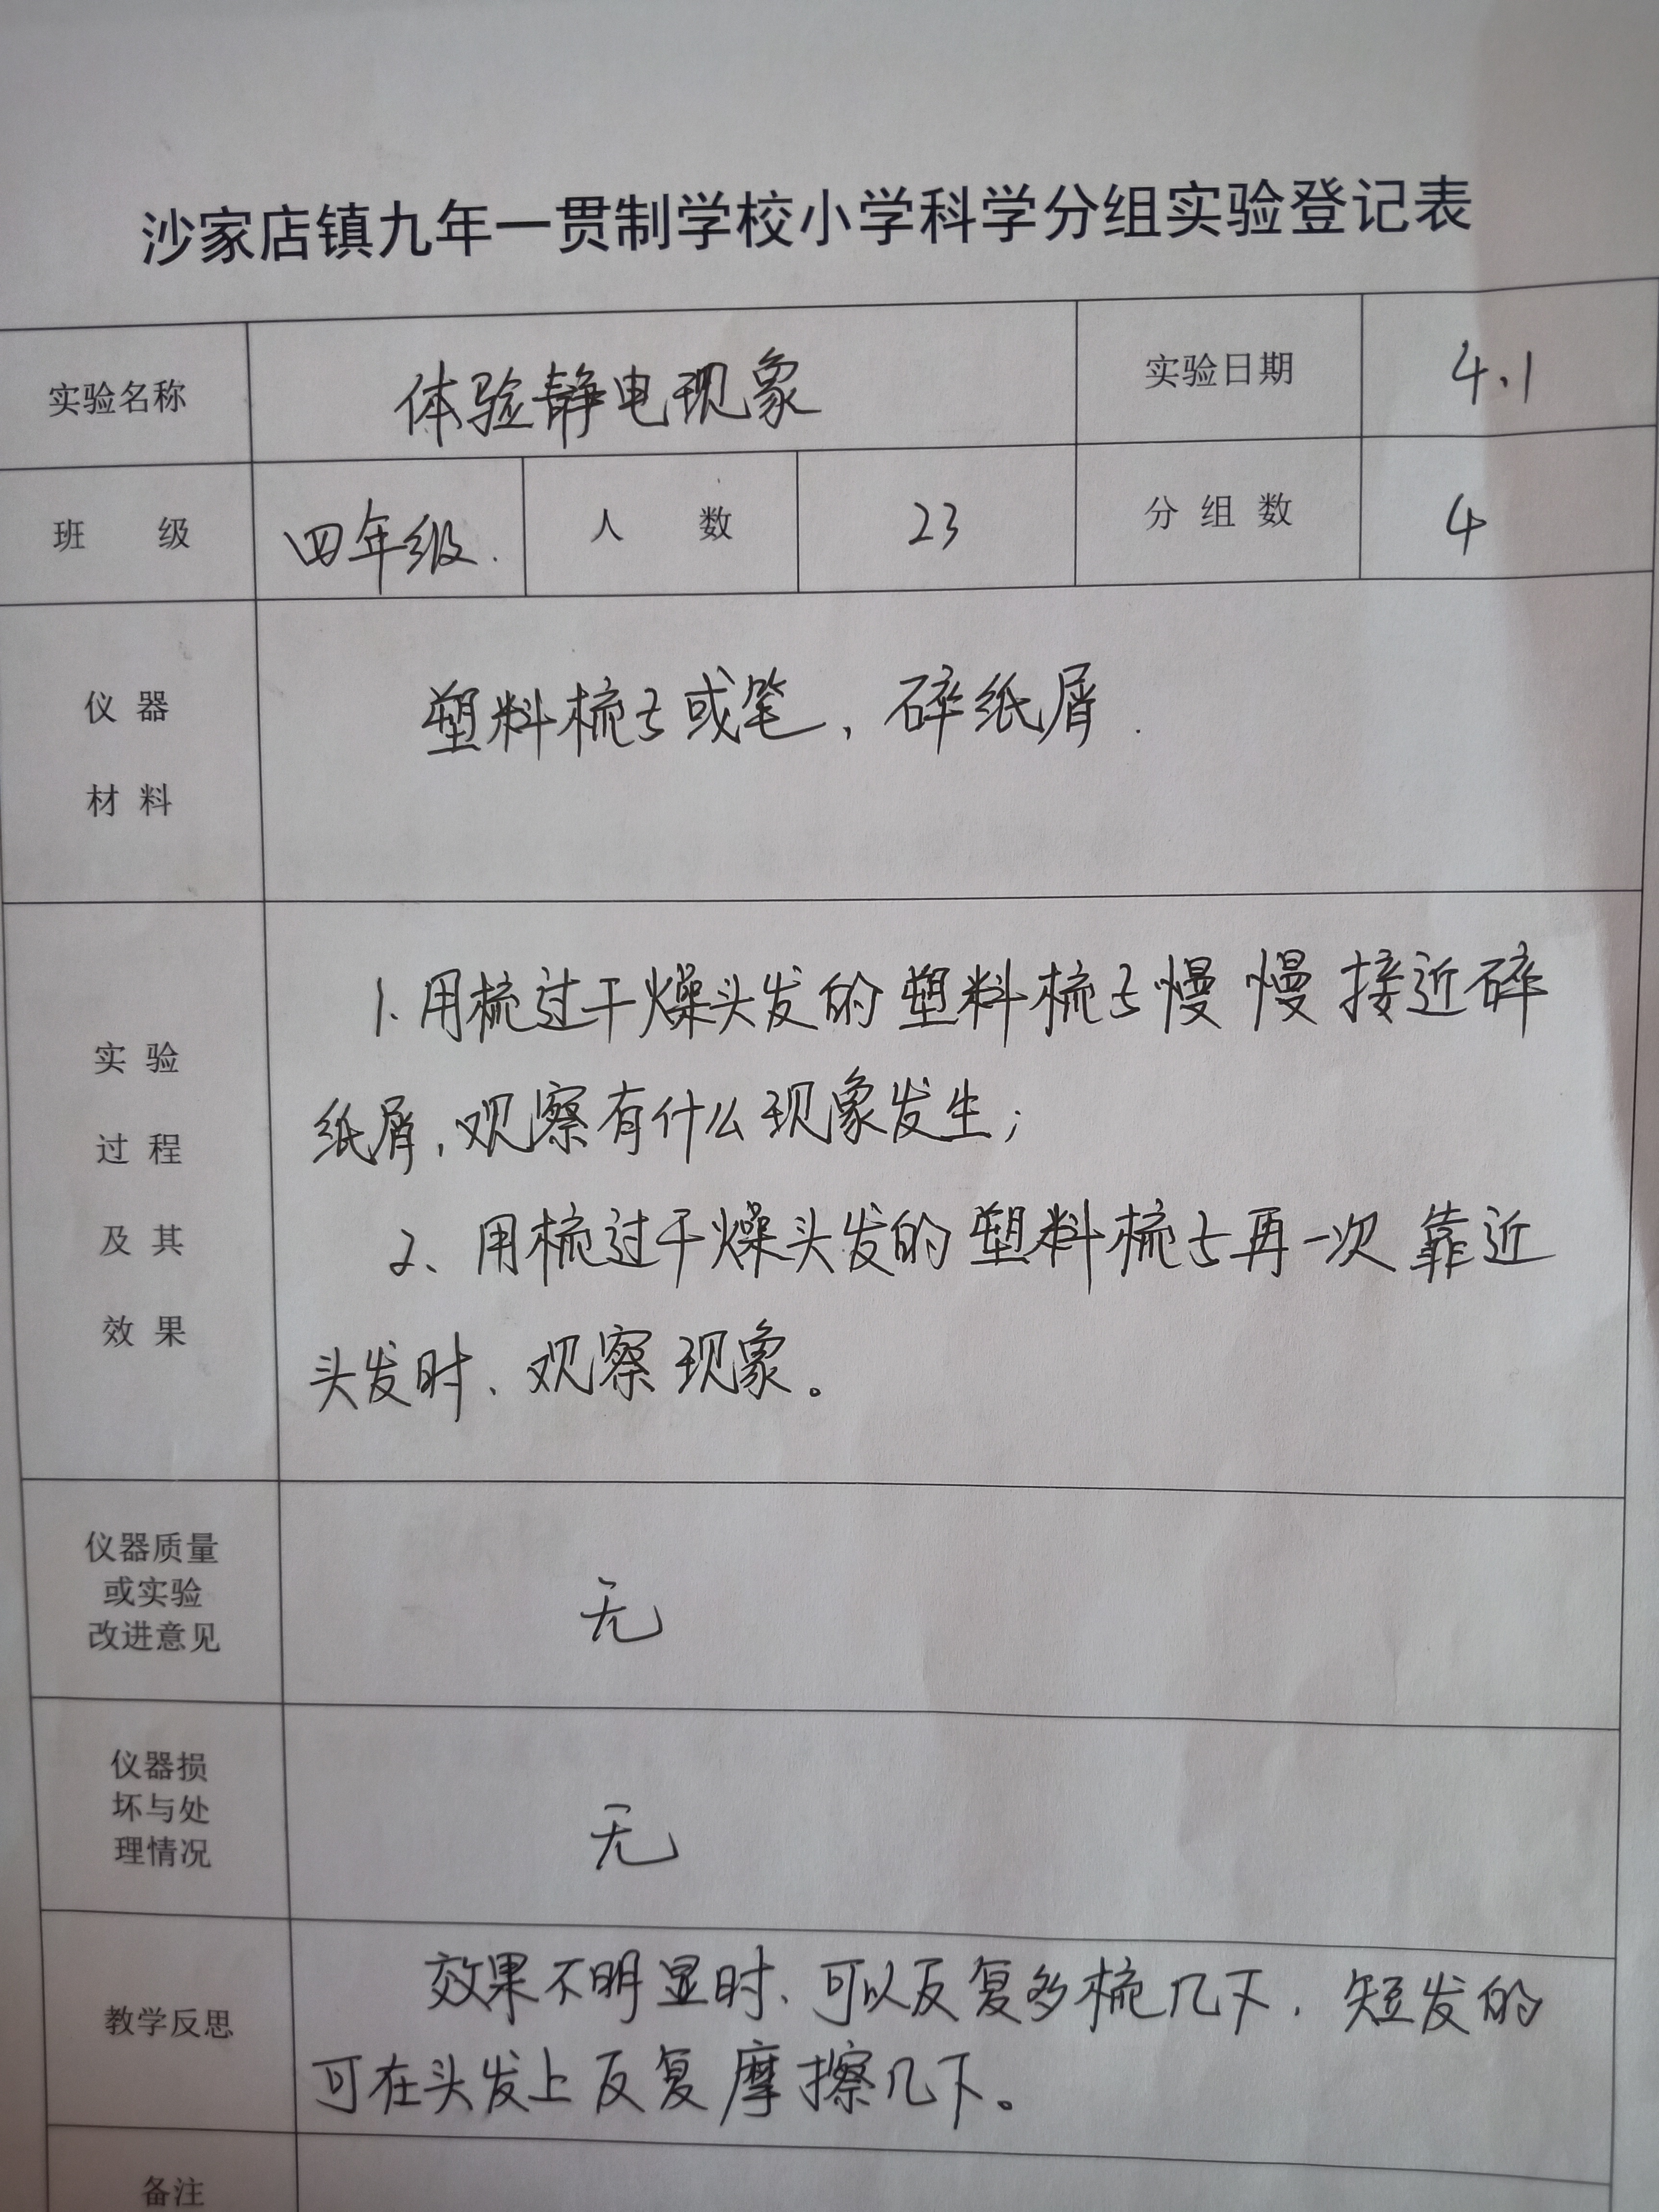 沙家店镇九年一贯制学校小学科学分组实验登记表
实验名称 体验静电现象 实验日期 4.1
班 级 四年级. 人 数 23 分 组 数 4
仪 器
材 料
塑料梳子或笔，碎纸屑.
实 验
过 程
及 其
效 果
1.用梳过干燥头发的塑料梳子慢慢接近碎
纸屑，观察有什么现象发生；
2、用梳过干燥头发的塑料梳子再一次靠近
头发时、观察现象。
仪器质量
或实验
改进意见
无
仪器损
坏与处
理情况
无
教学反思
效果不明显时、可以反复多梳几下，短发的
可在头发上反复摩擦几下。
备注